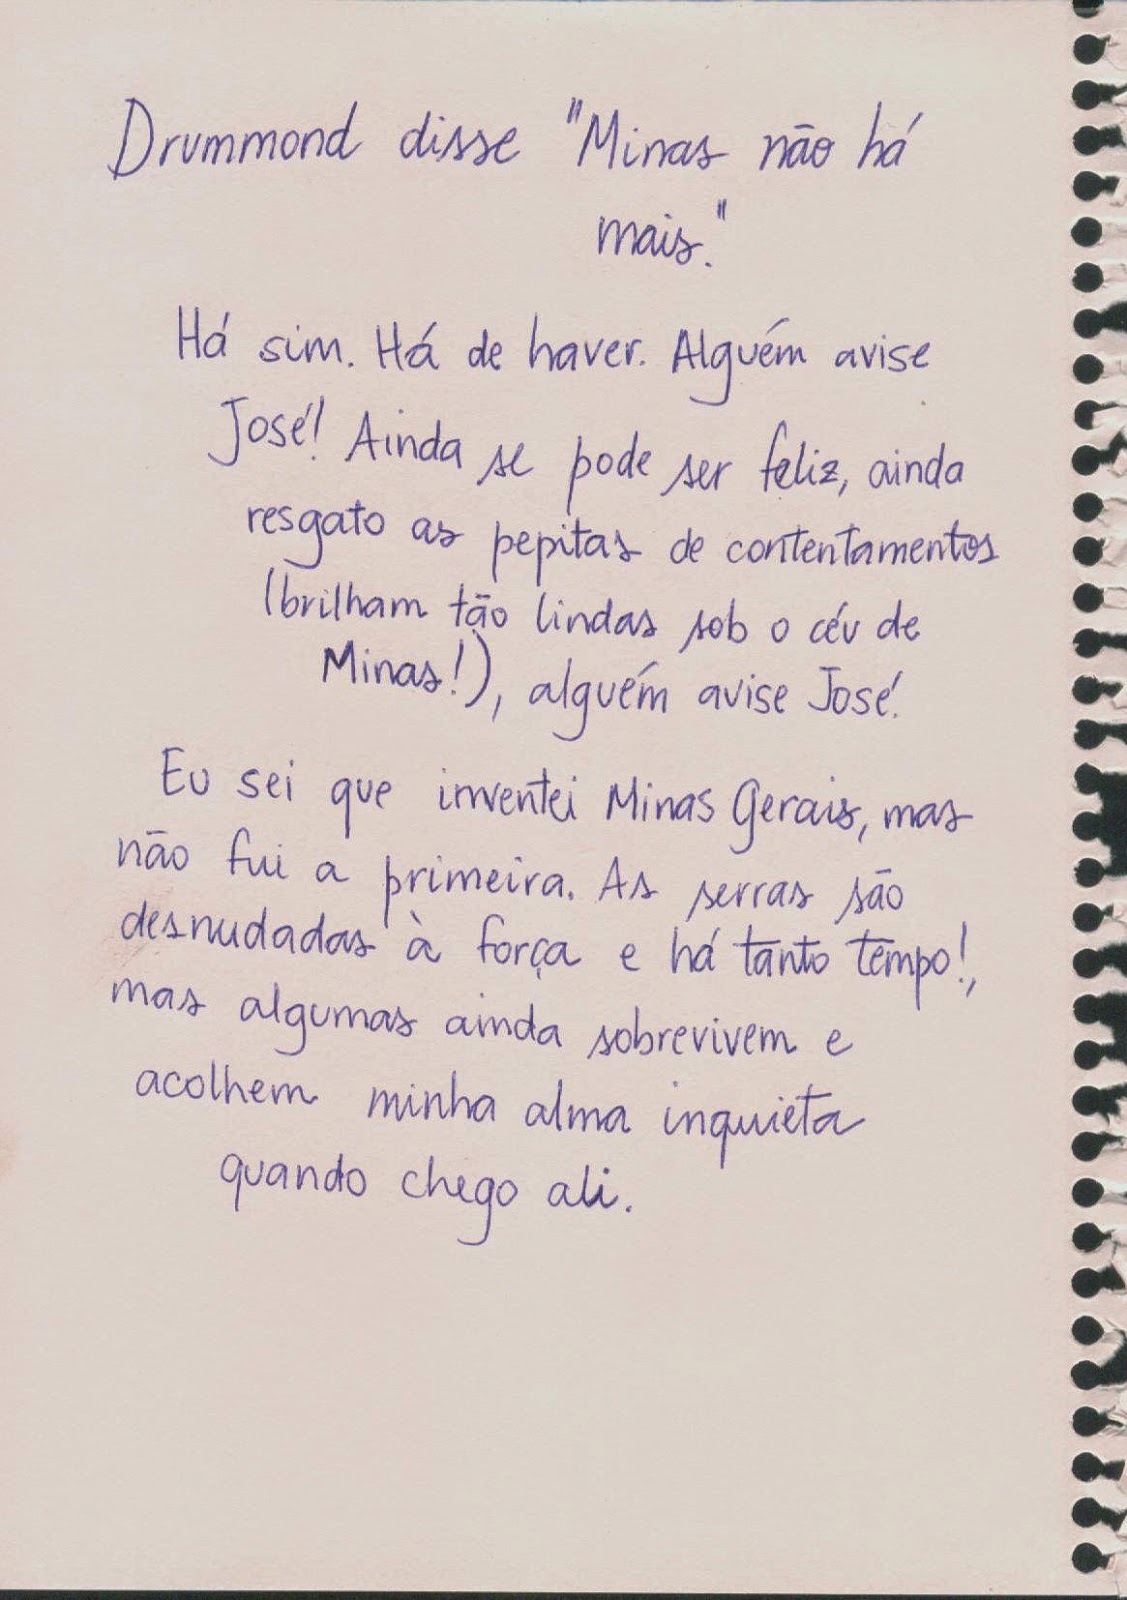 Drummond disse "Minas não há
mais."
Há sim. Há de haver. Alguém avise
José! Ainda se pode ser feliz, ainda
resgato as pepitas de contentamentos
(brilham tão lindas sob o céu de
Minas!), alguém avise José!
Eu sei que inventei Minas Gerais, mas
não fui a primeira. As serras são
desnudadas à força e há tanto tempo!,
mas algumas ainda sobrevivem e
acolhem minha alma inquieta
quando chego ali.